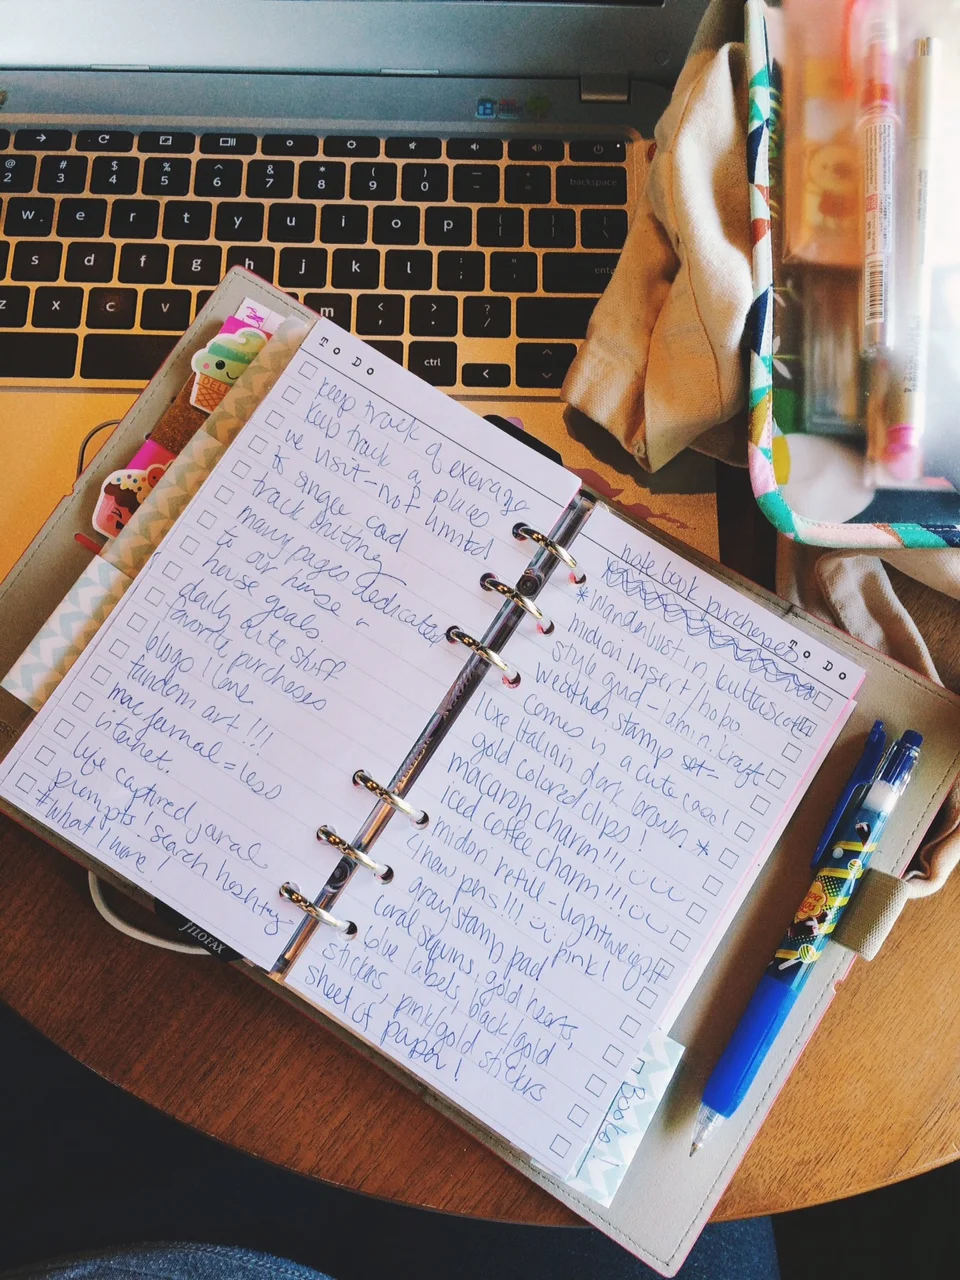 To Do
keep track of exercise
keep track a places
we visit - not limited
to singer card
track knitting
many pages dedicated
to our house
house goals.
daily cute stuff
favorite purcheses
blogs I love
random art!!!
more journal = less
internet.
life captured jornal
prempts! search hashtag
#What I Wore.
FILOFAX
note book purcheses
To Do
*Wanderlust in butterscotch
midori insert/hobo
style guid - lamin. kraft
weather stamp set-
comes in a cute case!
1 Oxe Italian dark brown *
gold colored clips!
macaron charm!!!
Iced coffee charm!!!
midori refill - lightweight
4 new pens!!! pink!
gray stamp pad
coral sequins, gold hearts,
blue labels, black/gold
stickers, pink/gold stickers
sheet of paper!
Books!
@ # $ % ^ & * ( )
2 3 4 5 6 7 8 9 0 backspace
w e r t y u i o p
s d f g h j k l
z x c v m
ctrl